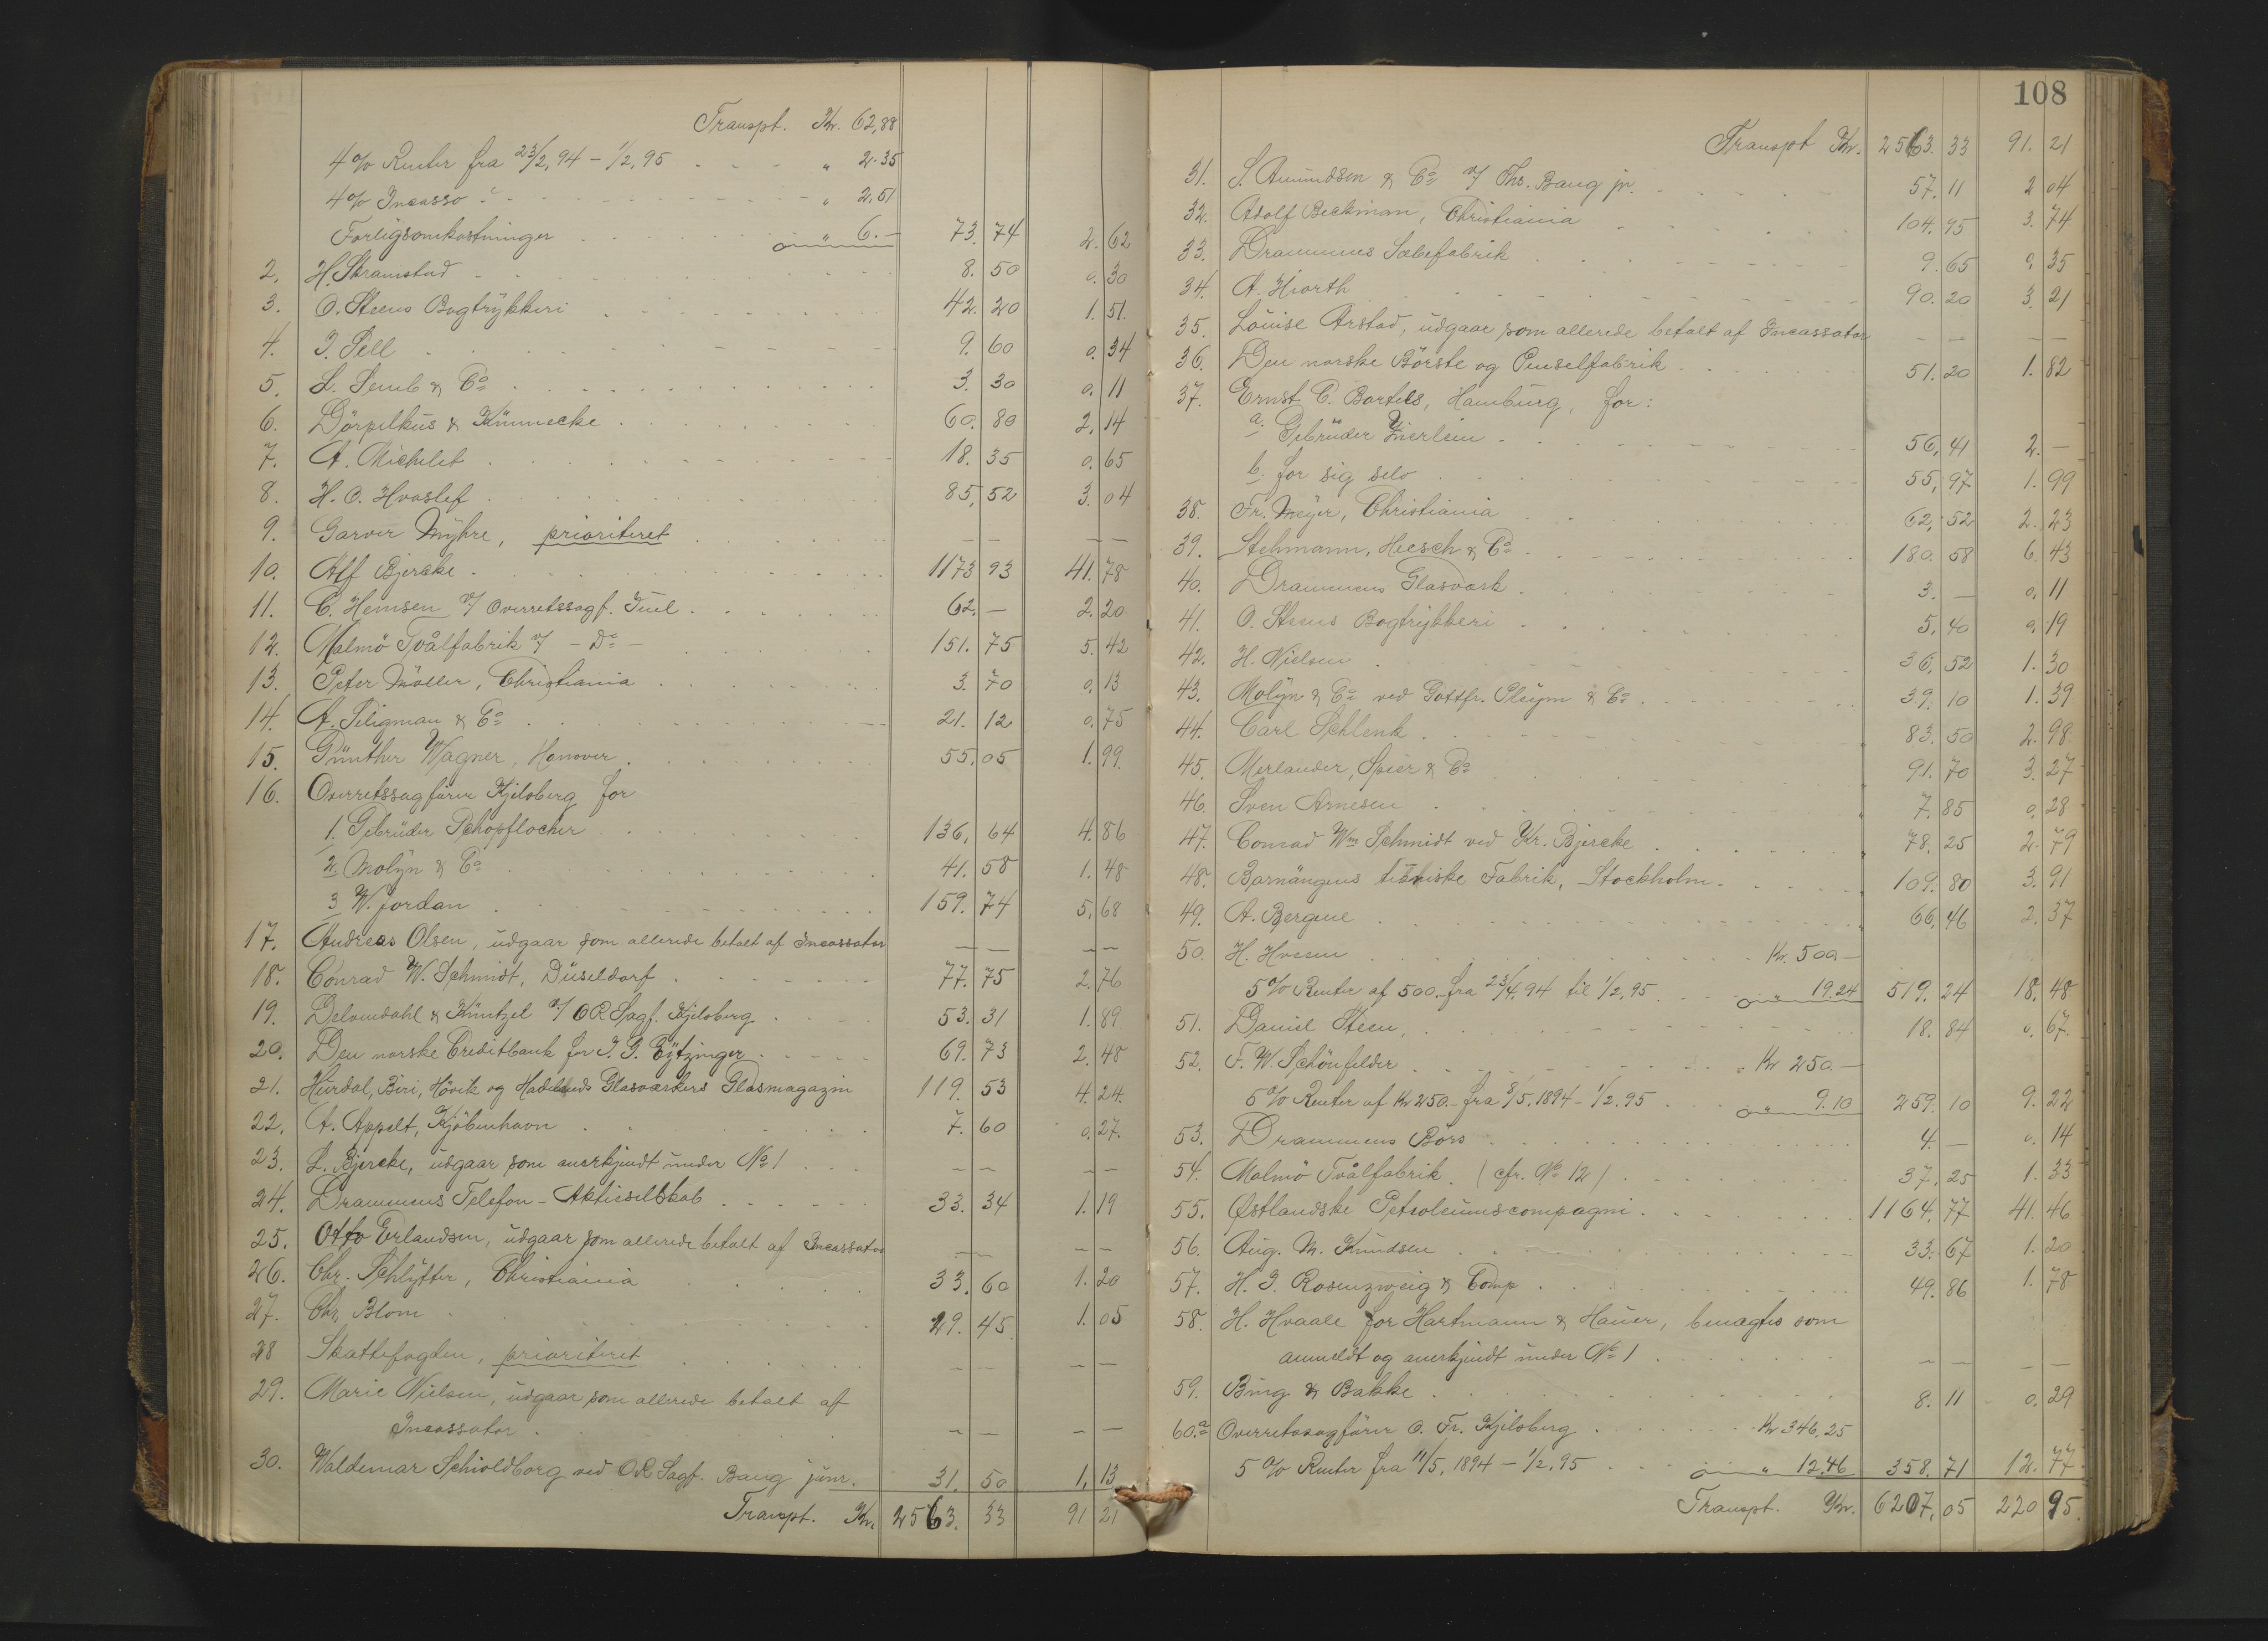 Transpt. Kr. 62,88
4 % Renter fra 23/2, 94 - 1/2, 95 " 2.35
4 % Incasso " 2,51
Forligsomkostninger " 6.- 73. 74 2. 62
2. H. Skramstad 8. 50 0. 30
3. O. Steens Bogtrykkeri 42. 20 1. 51
4. J. Sell 9. 60 0. 34
5. L. Semb & Co 3. 30 0. 11
6. Dörpelkus & Kümmecke 60. 80 2, 14
7. A. Michelet 18. 35 0. 65
8. H. O. Hvoslef 85, 52 3. 04
9. Garver Myhre, prioriteret — — — —
10. Alf Bjercke 1173 93 41. 78
11. C. Hemsen v/ Overretssagf. Juel 62. — 2. 20
12. Malmö Tvålfabrik v/ - Do - 151. 75 5. 42
13. Peter Möller, Christiania 3. 70 0, 13
14. A. Seligman & Co 21. 12 0. 75
15. Günther Wagner, Hanover 55. 05 1. 99.
16. Overretssagfører Kjilsberg for
1. Gebrüder Schopflocher 136, 64 4. 86
2. Molyn & Co 41. 58 1. 48
3 W. Jordan 159. 74 5, 68
17. Andreas Olsen, udgaar som allerede betalt af Incassator — — — —
18. Conrad W. Schmidt, Düseldorf 77. 75 2. 76
19. Delvendahl & Küntzel v/ OR Sagf. Kjilsberg 53. 31 1. 89.
20. Den norske Creditbank for J. G. Eytzinger 69. 73 2. 48
21. Hurdal, Biri, Hövik og Hadelands Glasværkers Glasmagazin 119. 53 4. 24.
22. A. Appelt, Kjöbenhavn 7. 60 0. 27.
23. L. Bjercke, udgaar som anerkjendt under No 1 — — — —
24. Drammens Telefon - Aktieselskab 33. 34 1. 19
25. Otto Erlandsen, udgaar som allerede betalt af Incassator — — — —
26. Chr. Schlytter, Christiania 33. 60 1. 20
27. Chr. Blom 29. 45. 1. 05
28 Skattefogden, prioriteret — — — —
29. Marie Nielsen, udgaar som allerede betalt af
Incassator — — — —
30. Waldemar Schioldborg ved OR Sagf. Bang junr. 31. 50 1, 13
Transpt. Kr. 2563. 33 91 21
108
Transpt Kr. 2563. 33 91. 21
31. S. Amundsen & Co v/ Ths. Bang jr. 57. 11 2 04
32. Adolf Beckman, Christiania 104. 95 3. 74
33. Drammens Sæbefabrik 9. 65 0, 35
34. A. Hiorth 90. 20 3. 21
35. Louise Arstad, udgaar som allerede betalt af Incassator — — — —
36. Den norske Börste og Penselfabrik 51. 20 1. 82
37. Ernst C. Bartels, Hamburg, for:
a. Gebrüder Zierlein 56, 41 2. —
b. for sig selv 55, 97 1. 99
38. Fr. Meyer, Christiania 62, 52 2. 23
39. Stehmann, Heesch & Co 180. 58 6. 43
40. Drammens Glasværk 3. — 0, 11
41. O. Steens Bogtrykkeri 5, 40 0, 19
42. H. Nielsen 36, 52 1. 30
43. Molyn & Co ved Gottfr. Pleym & Co 39. 10 1. 39
44. Carl Schlenk 83. 50 2. 98.
45. Merlander, Speier & Co 91. 70 3. 27
46. Sven Arnesen 7. 85 0, 28
47. Conrad Wm Schmidt ved Kr. Bjercke 78. 25 2. 79
48. Barnängens tekniske Fabrik, Stockholm 109. 80 3. 91
49. A. Bergene 66, 46 2. 37
50. H. Hvssen Kr. 500 —
5 % Renter af 500.- fra 23/4, 94 til 1/2, 95 " 19.24 519. 24 18. 48
51. Daniel Steen, 18. 84 0. 67.
52. F. W. Schönfelder Kr 250. —
5 % Renter af Kr 250.- fra 8/5. 1894 - 1/2. 95 " 9.10 259. 10 9. 22
53. Drammens Börs 4. — 0. 14
54. Malmö Tvålfabrik. (cfr. No 12) 37. 25 1. 33
55. Østlandske Petroleumscompagni 1164. 77 41. 46
56. Aug. M. Knudsen 33. 67 1. 20
57. H. J. Rosenzweig & Comp 49. 86 1. 78
58. H. Hvaale for Hartmann & Hauer, benægtes som
anmeldt og anerkjendt under No 1 — — — —
59. Bing & Bakke 8. 11 0. 29
60.a Overretssagfører O. Fr. Kjilsberg Kr 346, 25
5 % Renter fra 11/5, 1894 - 1/2, 95 " 12,46 358. 71 12. 77.
Transpt. Kr. 6207, 05 220 95.